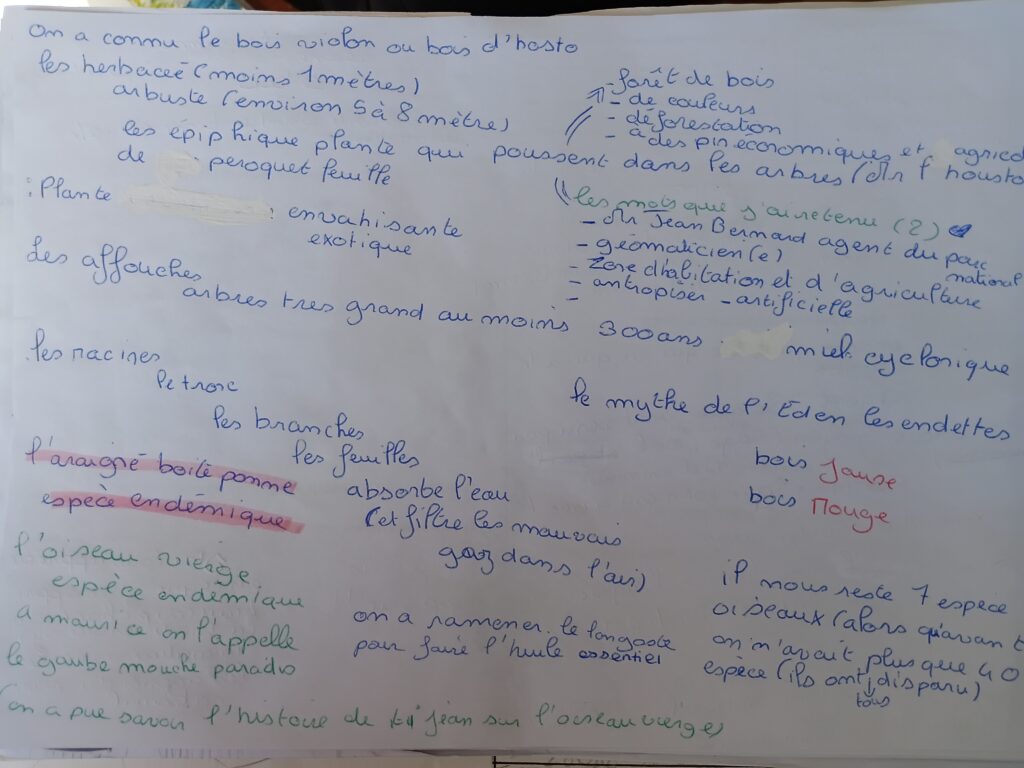 On a connu le bois violon ou bois d'hosto
les herbaceé (moins 1 mètres)
arbuste (environ 5 à 8 mètre)
- forêt de bois
- de couleurs
- déforestation
- a des pin économiques et agricol
les épiphique plante qui poussent dans les arbres (Mr f housto
de peroquet feuille
: Plante : envahisante
exotique
les mois que j'ai retenu (2)
- Mr Jean Bernard agent du parc
national
- géomaticien(e)
- Zone d'habitation et d'agriculture
- antropiser - artificielle
-
Les affouches
arbres tres grand au moins 300ans miel cyclonique
.les racines
le tronc
les branches
les feuilles
absorbe l'eau
(et filtre les mauvais
gaz dans l'air)
le mythe de l'Eden les endettes
bois Jause
bois Rouge
l'araigné boité pomme
espèce endémique
l'oiseau vierge
espèce endémique
a maurice on l'appelle
le gaube mouche paradis
on a ramener le longoste
pour faire l'huile essentiel
il nous reste 7 espèce
oiseaux (alors qu'avant
on n'avait plus que 40
espèce (ils ont disparu)
tous
(on a pue savoir l'histoire de ti jean sur l'oiseau vierge)